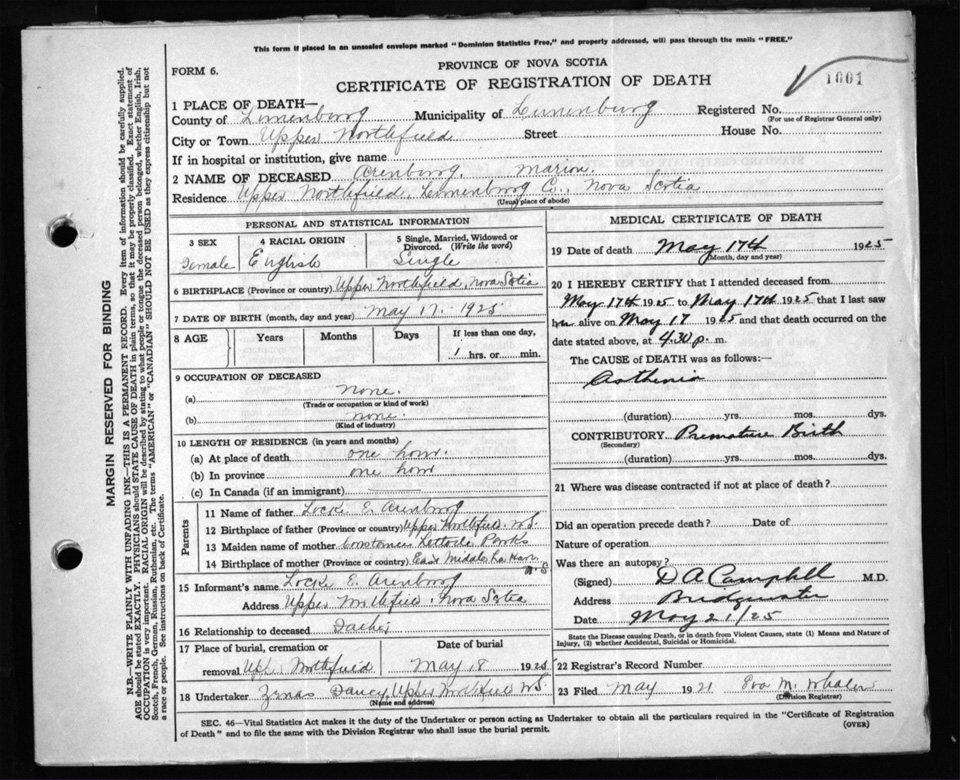 This form if placed in an unsealed envelope marked "Dominion Statistics Free," and properly addressed, will pass through the mails "FREE."
PROVINCE OF NOVA SCOTIA
FORM 6.
CERTIFICATE OF REGISTRATION OF DEATH
1001
1 PLACE OF DEATH—
County of Lunenburg Municipality of Lunenburg Registered No.
(For use of Registrar General only)
City or Town Upper Northfield Street House No.
If in hospital or institution, give name
2 NAME OF DECEASED Arenburg, Marion.
Residence Upper Northfield, Lunenburg Co., Nova Scotia
(Usual place of abode)
PERSONAL AND STATISTICAL INFORMATION
3 SEX 4 RACIAL ORIGIN 5 Single, Married, Widowed or
Divorced. (Write the word)
Female English Single
6 BIRTHPLACE (Province or country) Upper Northfield, Nova Scotia
7 DATE OF BIRTH (month, day and year) May 17. 1925
8 AGE Years Months Days If less than one day,
1 hrs. or min.
9 OCCUPATION OF DECEASED
(a) none.
(Trade or occupation or kind of work)
(b) none.
(Kind of industry)
10 LENGTH OF RESIDENCE (in years and months)
(a) At place of death one hour.
(b) In province one hour
(c) In Canada (if an immigrant)
Parents
11 Name of father Locke E. Arenburg
12 Birthplace of father (Province or country) Upper Northfield N.S.
13 Maiden name of mother Constance Parks
14 Birthplace of mother (Province or country) East Middle La Have
N.S
15 Informant's name Locke E. Arenburg
Address Upper Northfield, Nova Scotia
16 Relationship to deceased Father
17 Place of burial, cremation or Date of burial
removal Northfield May 18 1925
18 Undertaker Zenas Upper Northfield N.S.
(Name and address)
MEDICAL CERTIFICATE OF DEATH
19 Date of death May 17th 1925
(Month, day and year)
20 I HEREBY CERTIFY that I attended deceased from
May 17th 1925 to May 17th 1925 that I last saw
her alive on May 17 1925 and that death occurred on
date stated above, at 4.30 p. m.
The CAUSE of DEATH was as follows:—
Asthenia
(duration) yrs. mos. dys.
CONTRIBUTORY Premature Birth
(Secondary)
(duration) yrs. mos. dys.
21 Where was disease contracted if not at place of death?
Did an operation precede death? Date of
Nature of operation
Was there an autopsy?
(Signed) D A Campbell M.D.
Address Bridgewater
Date May 21/25
State the Disease causing Death, or in death from Violent Causes, state (1) Means and Nature of
Injury, (2) whether Accidental, Suicidal or Homicidal.
22 Registrar's Record Number
23 Filed May 1921 Eva M. Whalen
(Division Registrar)
SEC. 46—Vital Statistics Act makes it the duty of the Undertaker or person acting as Undertaker to obtain all the particulars required in the "Certificate of Registration
of Death" and to file the same with the Division Registrar who shall issue the burial permit.
(OVER)
MARGIN RESERVED FOR BINDING
N.B.—WRITE PLAINLY WITH UNFADING INK—THIS IS A PERMANENT RECORD. Every item of information should be carefully supplied.
AGE should be stated EXACTLY. PHYSICIANS should STATE CAUSE OF DEATH in plain terms, so that it may be properly classified. Exact statement of
OCCUPATION is very important. RACIAL ORIGIN will be described by stating to what people or tongue the deceased person belonged, whether English, Irish,
Scotch, French, German, Russian, Ruthenian, etc. The terms "AMERICAN" or "CANADIAN" SHOULD NOT BE USED as they express citizenship but not
a race or people. See instructions on back of Certificate.